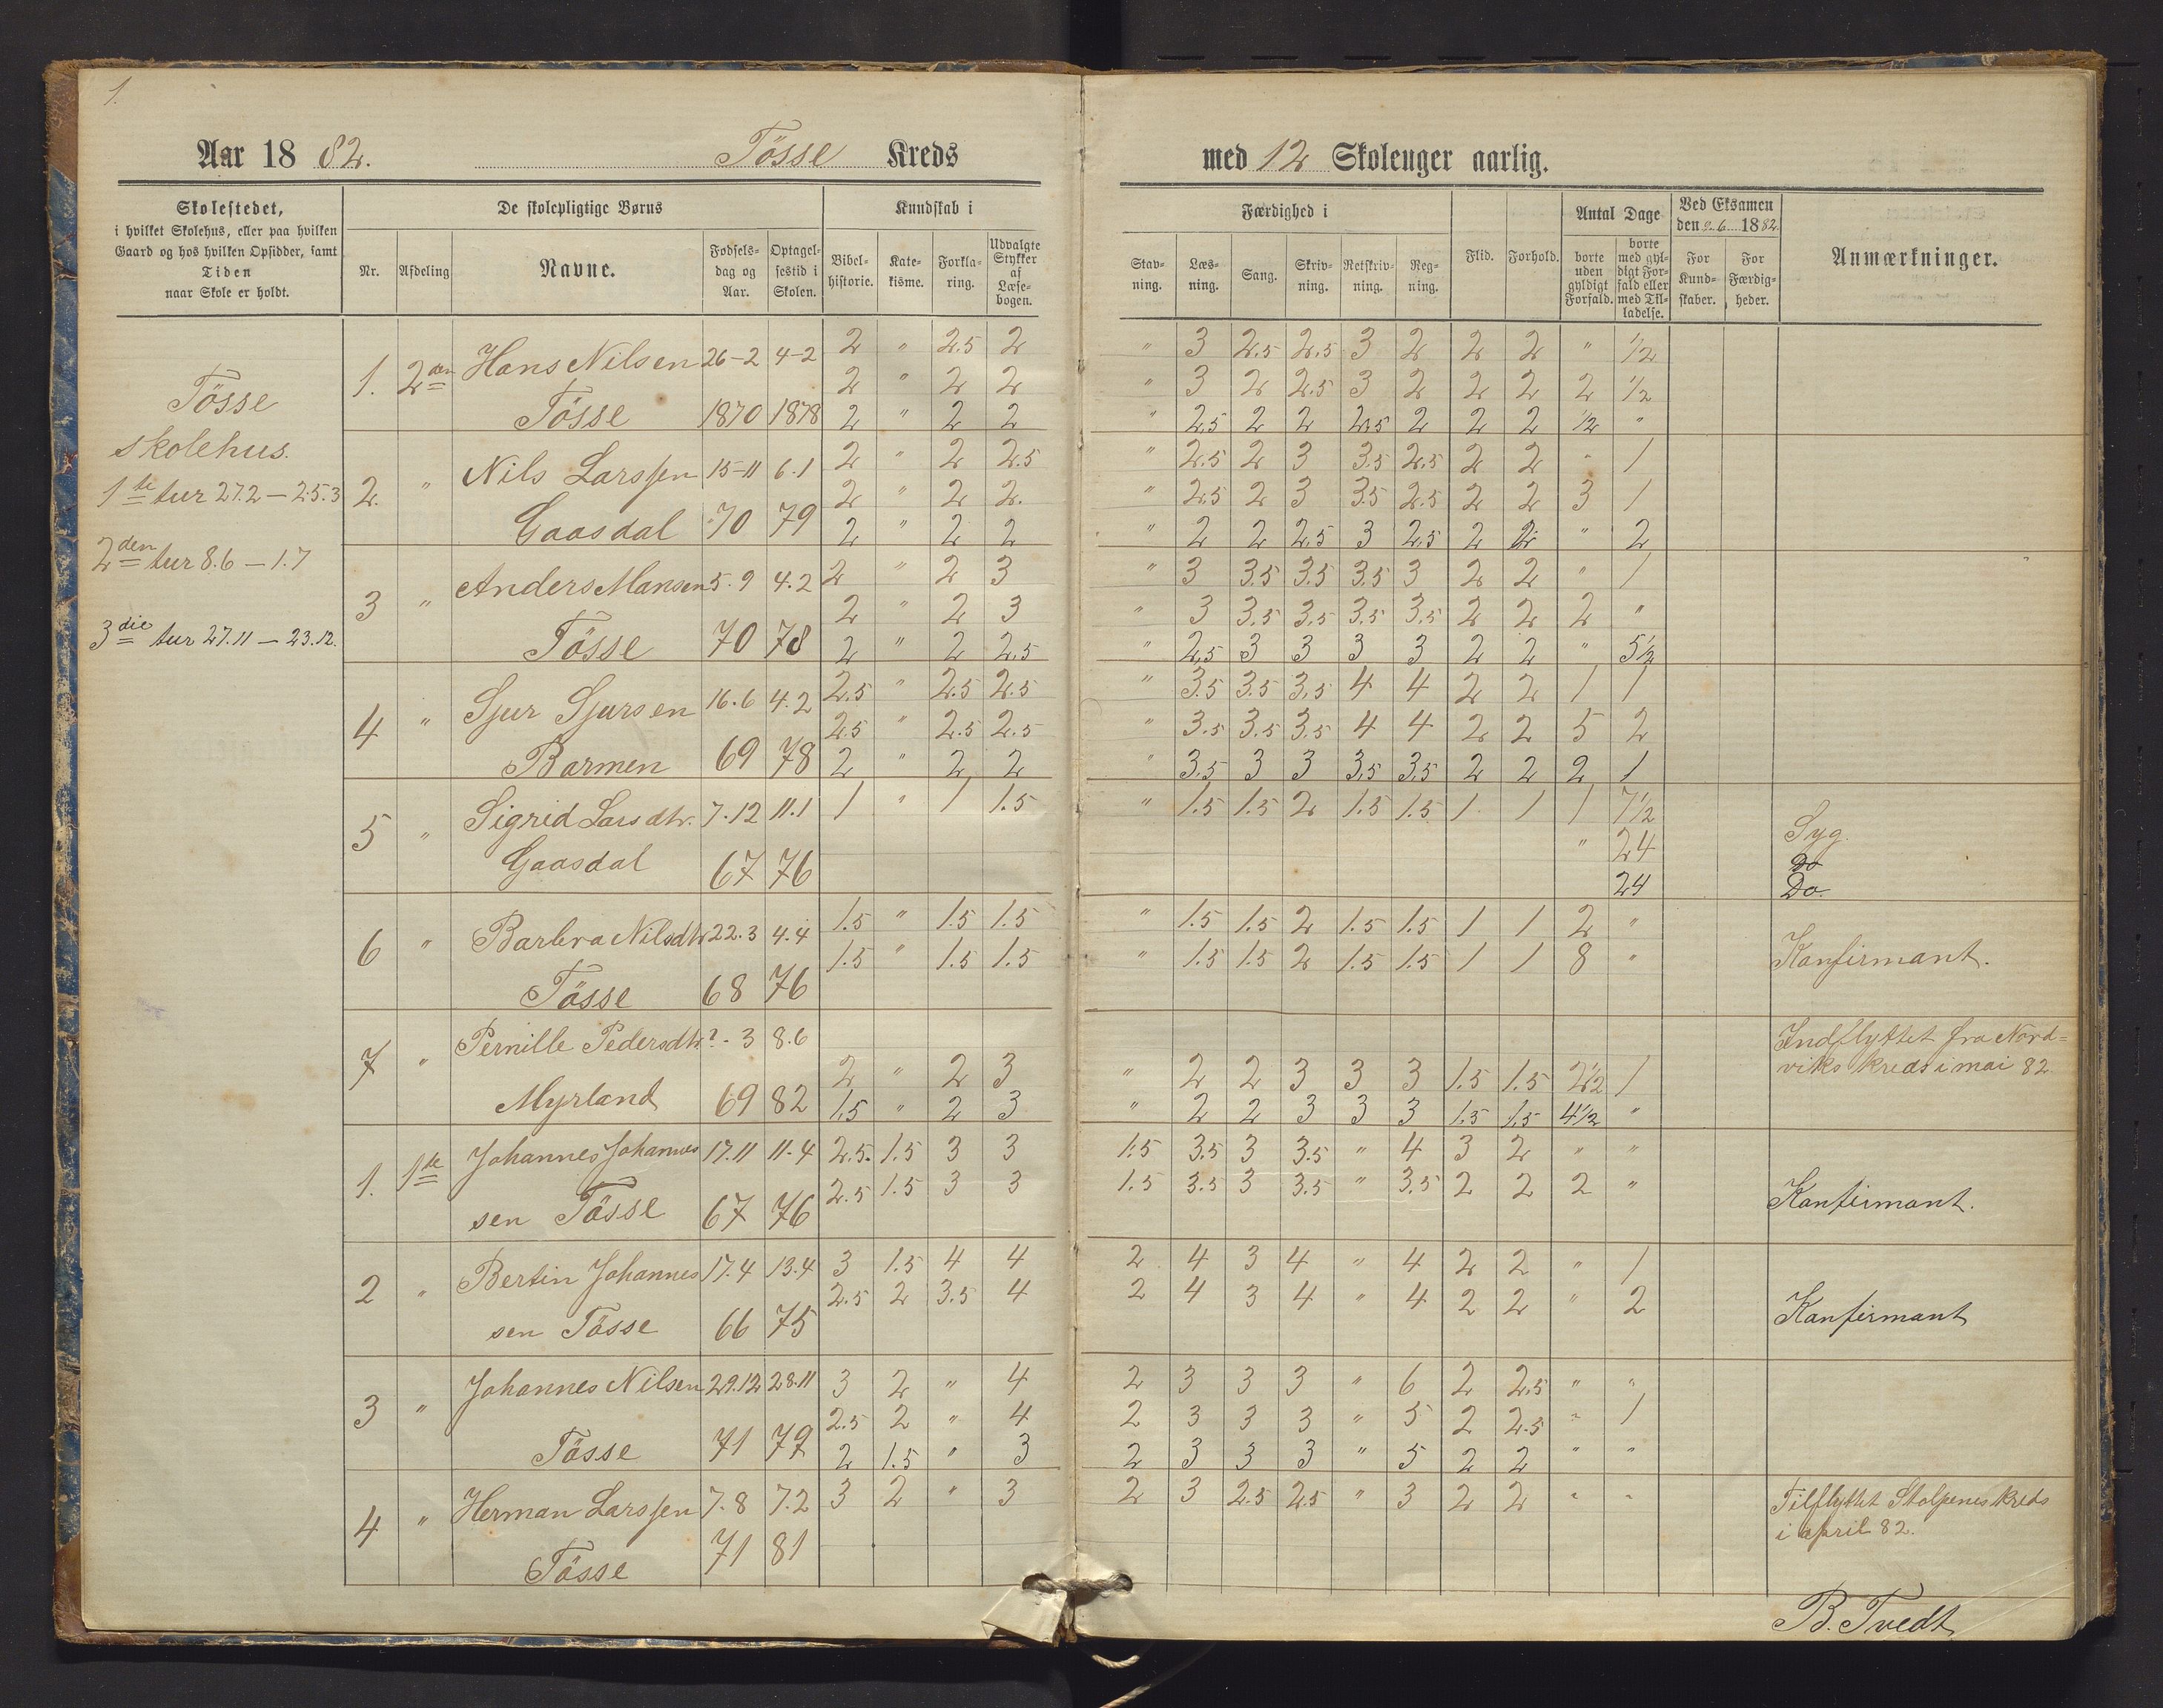 1.
Aar 1882. Tösse Kreds med 12 Skoleuger aarlig.
Skolestedet,
i hvilket Skolehus, eller paa hvilken
Gaard og hos hvilken Opsidder, samt
Tiden
naar Skole er holdt.
De skolepligtige Børns
Nr.
Afdeling
Navne.
Fødsels-
dag og
Aar.
Optagel-
sestid i
Skolen.
Kundskab i
Bibel-
historie.
Kate-
kisme.
Forkla-
ring.
Udvalgte
Stykker
af
Læse-
bogen.
Færdighed i
Stav-
ning.
Læs-
ning.
Sang.
Skriv-
ning.
Retskriv-
ning.
Reg-
ning.
Flid.
Forhold.
Antal Dage
borte
uden
gyldigt
Forfald.
borte
med gyl-
digt For-
fald eller
med Til-
ladelse.
Ved Eksamen
den 9.6 1882.
For
Kund-
skaber.
For
Færdig-
heder.
Anmærkninger.
Tösse
skolehus.
1ste tur 27.2 — 25.3
2den tur 8.6 — 1.7
3die tur 27.11 — 23.12.
1. 2den Hans Nilsen 26-2 4-2 2 " 2.5 2 " 3 2.5 2.5 3 2 2 2 " 1/2
2 " 2 2 " 3 2 2.5 3 2 2 2 2 1/2
Tösse 1870 1878 2 " 2 2 " 2.5 2 2 2.5 2 2 2 1/2 "
2. " Nils Larssen 15-11 6.1 2 " 2 2.5 " 2.5 2 3 3.5 2.5 2 2 " 1
2 " 2 2. " 2.5 2 3 3.5 2.5 2 2 3 1
Gaasdal 70 79 2 " 2 2 " 2 2 2.5 3 2.5 2 2 " 2
3 " Anders Mansen 5.9 4.2 2 " 2 3 " 3 3.5 3.5 3.5 3 2 2 " 1
2 " 2 3 " 3 3.5 3.5 3.5 3.5 2 2 2 "
Tösse 70 78 2 " 2 2.5 " 2.5 3 3 3 3 2 2 " 5 1/2
4 " Sjur Sjursen 16.6 4.2 2.5 " 2.5 2.5 " 3.5 3.5 3.5 4 4 2 2 1 1
2.5 " 2.5 2.5 " 3.5 3.5 3.5 4 4 2 2 5 2
Barmen 69 78 2 " 2 2 " 3.5 3 3 3.5 3.5 2 2 2 1
5 " Sigrid Larsdtr. 7.12 11.1 1 " 1 1.5 " 1.5 1.5 2 1.5 1.5 1 1 1 7 1/2 Syg.
" 24 Do
Gaasdal 67 76 24 Do.
6 " Barbra Nilsdtr 22.3 4.4 1.5 " 1.5 1.5 " 1.5 1.5 2 1.5 1.5 1 1 2 "
1.5 " 1.5 1.5 " 1.5 1.5 2 1.5 1.5 1 1 8 " Konfirmant.
Tösse 68 76
7 " Pernille Pedersdtr. ?-3 8.6 Indflyttet fra Nord=
2 " 2 3 " 2 2 3 3 3 1.5 1.5 2 1/2 1 viks kreds i mai 82
Myrland 69 82 1.5 " 2 3 " 2 2 3 3 3 1.5 1.5 4 1/2 "
1. 1ste Johannes Johannes 17.11 11.4 2.5. 1.5 3 3 1.5 3.5 3 3.5 " 4 3 2 " "
2.5 1.5 3 3 1.5 3.5 3 3.5 " 3.5 2 2 2 " Konfirmant.
sen Tösse 67 76
2 " Bertin Johannes 17.4 13.4 3 1.5 4 4 2 4 3 4 " 4 2 2 " 1
2.5 2 3.5 4 2 4 3 4 " 4 2 2 " 2 Konfirmant
sen Tösse 66 75
3 " Johannes Nilsen 29.12 28.11 3 2 " 4 2 3 3 3 " 6 2 2.5 " "
2.5 2 " 4 2 3 3 3 " 5 2 2.5 " 1
Tösse 71 79 2 1.5 " 3 2 3 3 3 " 5 2 2 " "
4 " Herman Larssen 7.8 7.2 3 2 " 3 2 3 2.5 2.5 " 3 2 2 " " Tilflyttet Stolpenes kreds
i april 82.
Tösse 71 81
B. Tvedt